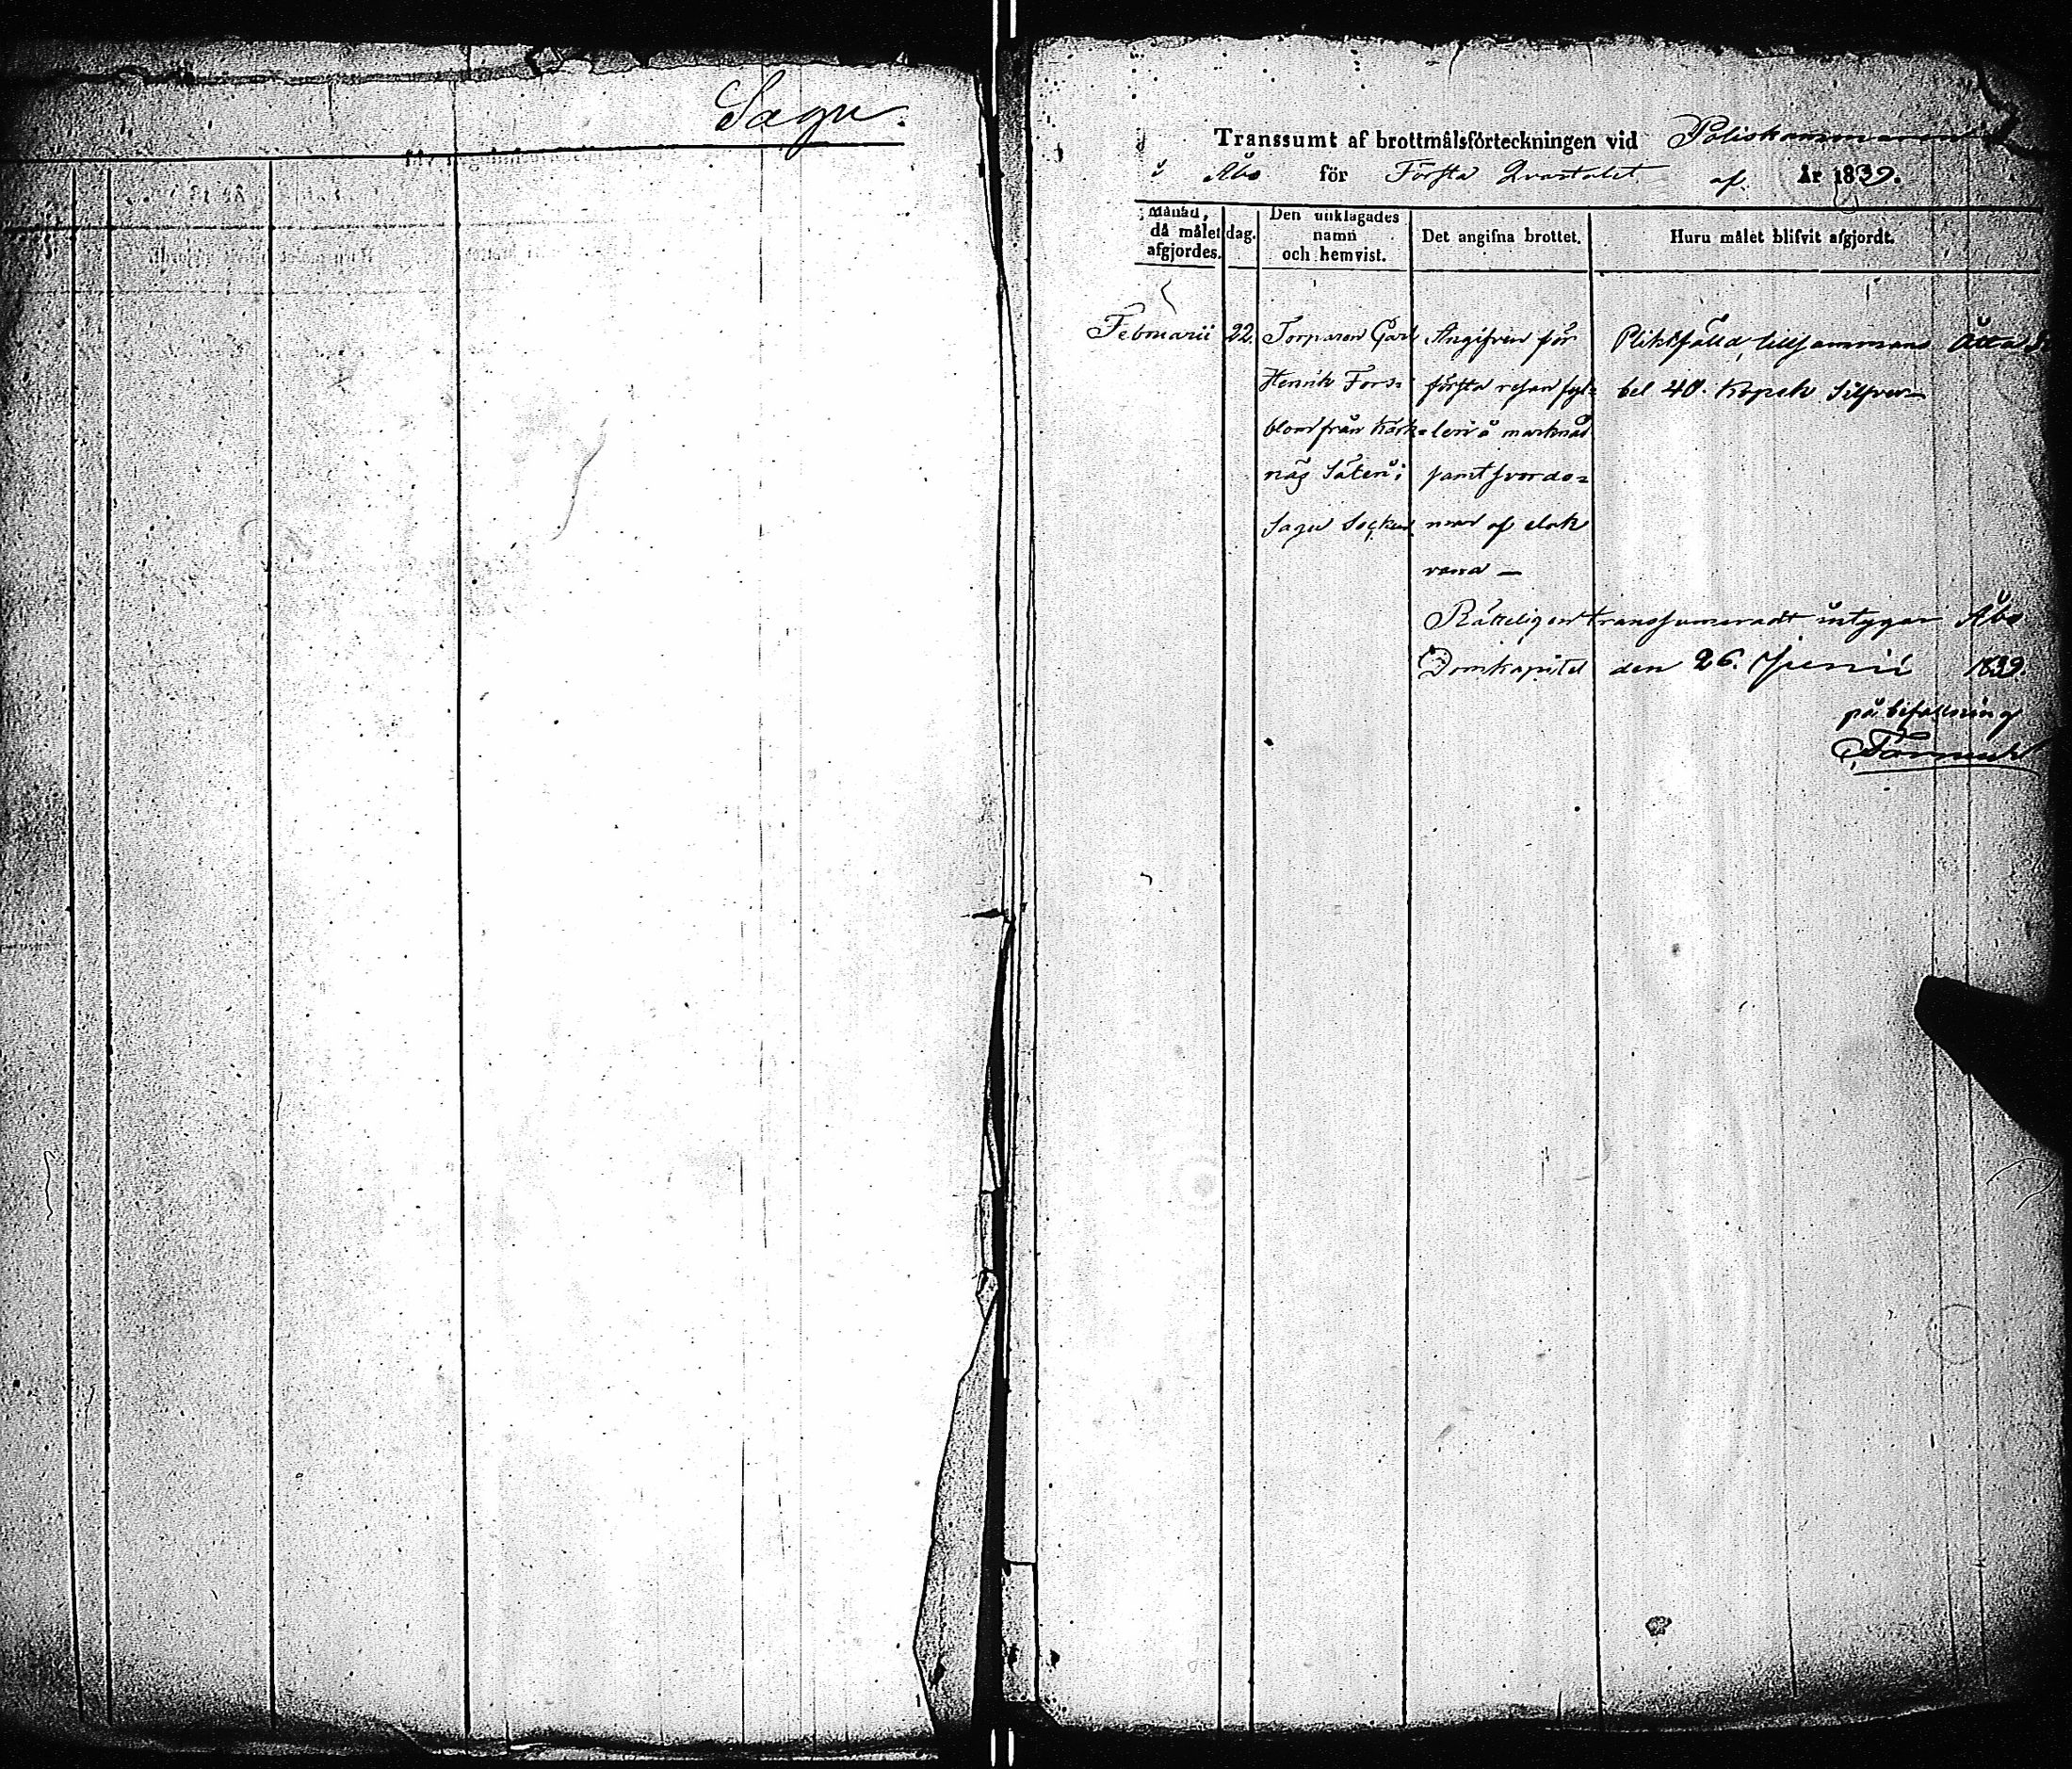 Sagu.
Transsumt af brottmålsförteckningen vid Poliskammaren
i Åbo för Första Qvartalet af År 1839.
månad,
då målet
afgjordes.
dag.
Den anklagades
namn
och hemvist.
Det angifna brottet.
Huru målet blifvit afgjordt.
Februarii
22.
Torparen Carl
Henrik Fors=
blom från Kärk=
näs Säteri i
Sagu Socken
Angifven för
första resan fyl=
leri å marknad
samt svordo=
mar af elak
vana —
Pliktfälld, tillsammans Åtta Ru
bel 40. Kopek Silfver—
Rätteligen transsumeradt intygar Åbo
Domkapitel den 26. Junii 1839.
på befallning